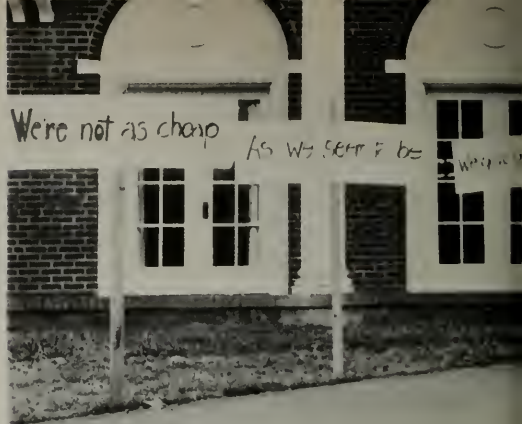 We're not as cheap
As we seem to be